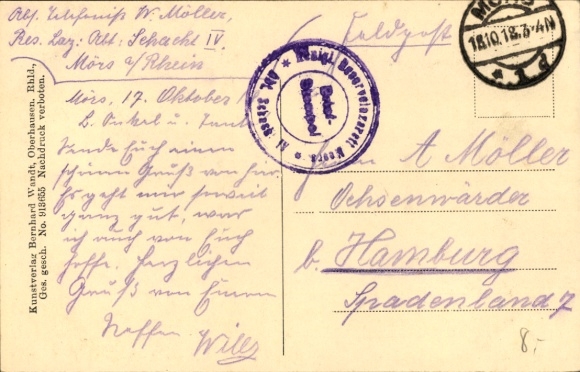 Abs. Telefonist W. Möller,
Res. Laz. Abt: Schacht IV
Mörs a/Rhein
Feldpost
MÖRS
18.10.18.3-4N
Königl. Reservelazarett Moers
Abt. Schacht IV
Brief-
Stempel
Mörs, 17. Oktober
L. Onkel u. Tante
Sende Euch einen
schönen Gruß von hier.
Es geht mir soweit
ganz gut, was
ich auch von Euch
hoffe. Herzlichen
Gruß von Eurem
Neffen Willy
Herrn A Möller
Ochsenwärder
b. Hamburg
Spadenland 7
8.-
Kunstverlag Bernhard Wandt, Oberhausen, Rhld.,
Ges. gesch. No. 913655 Nachdruck verboten.